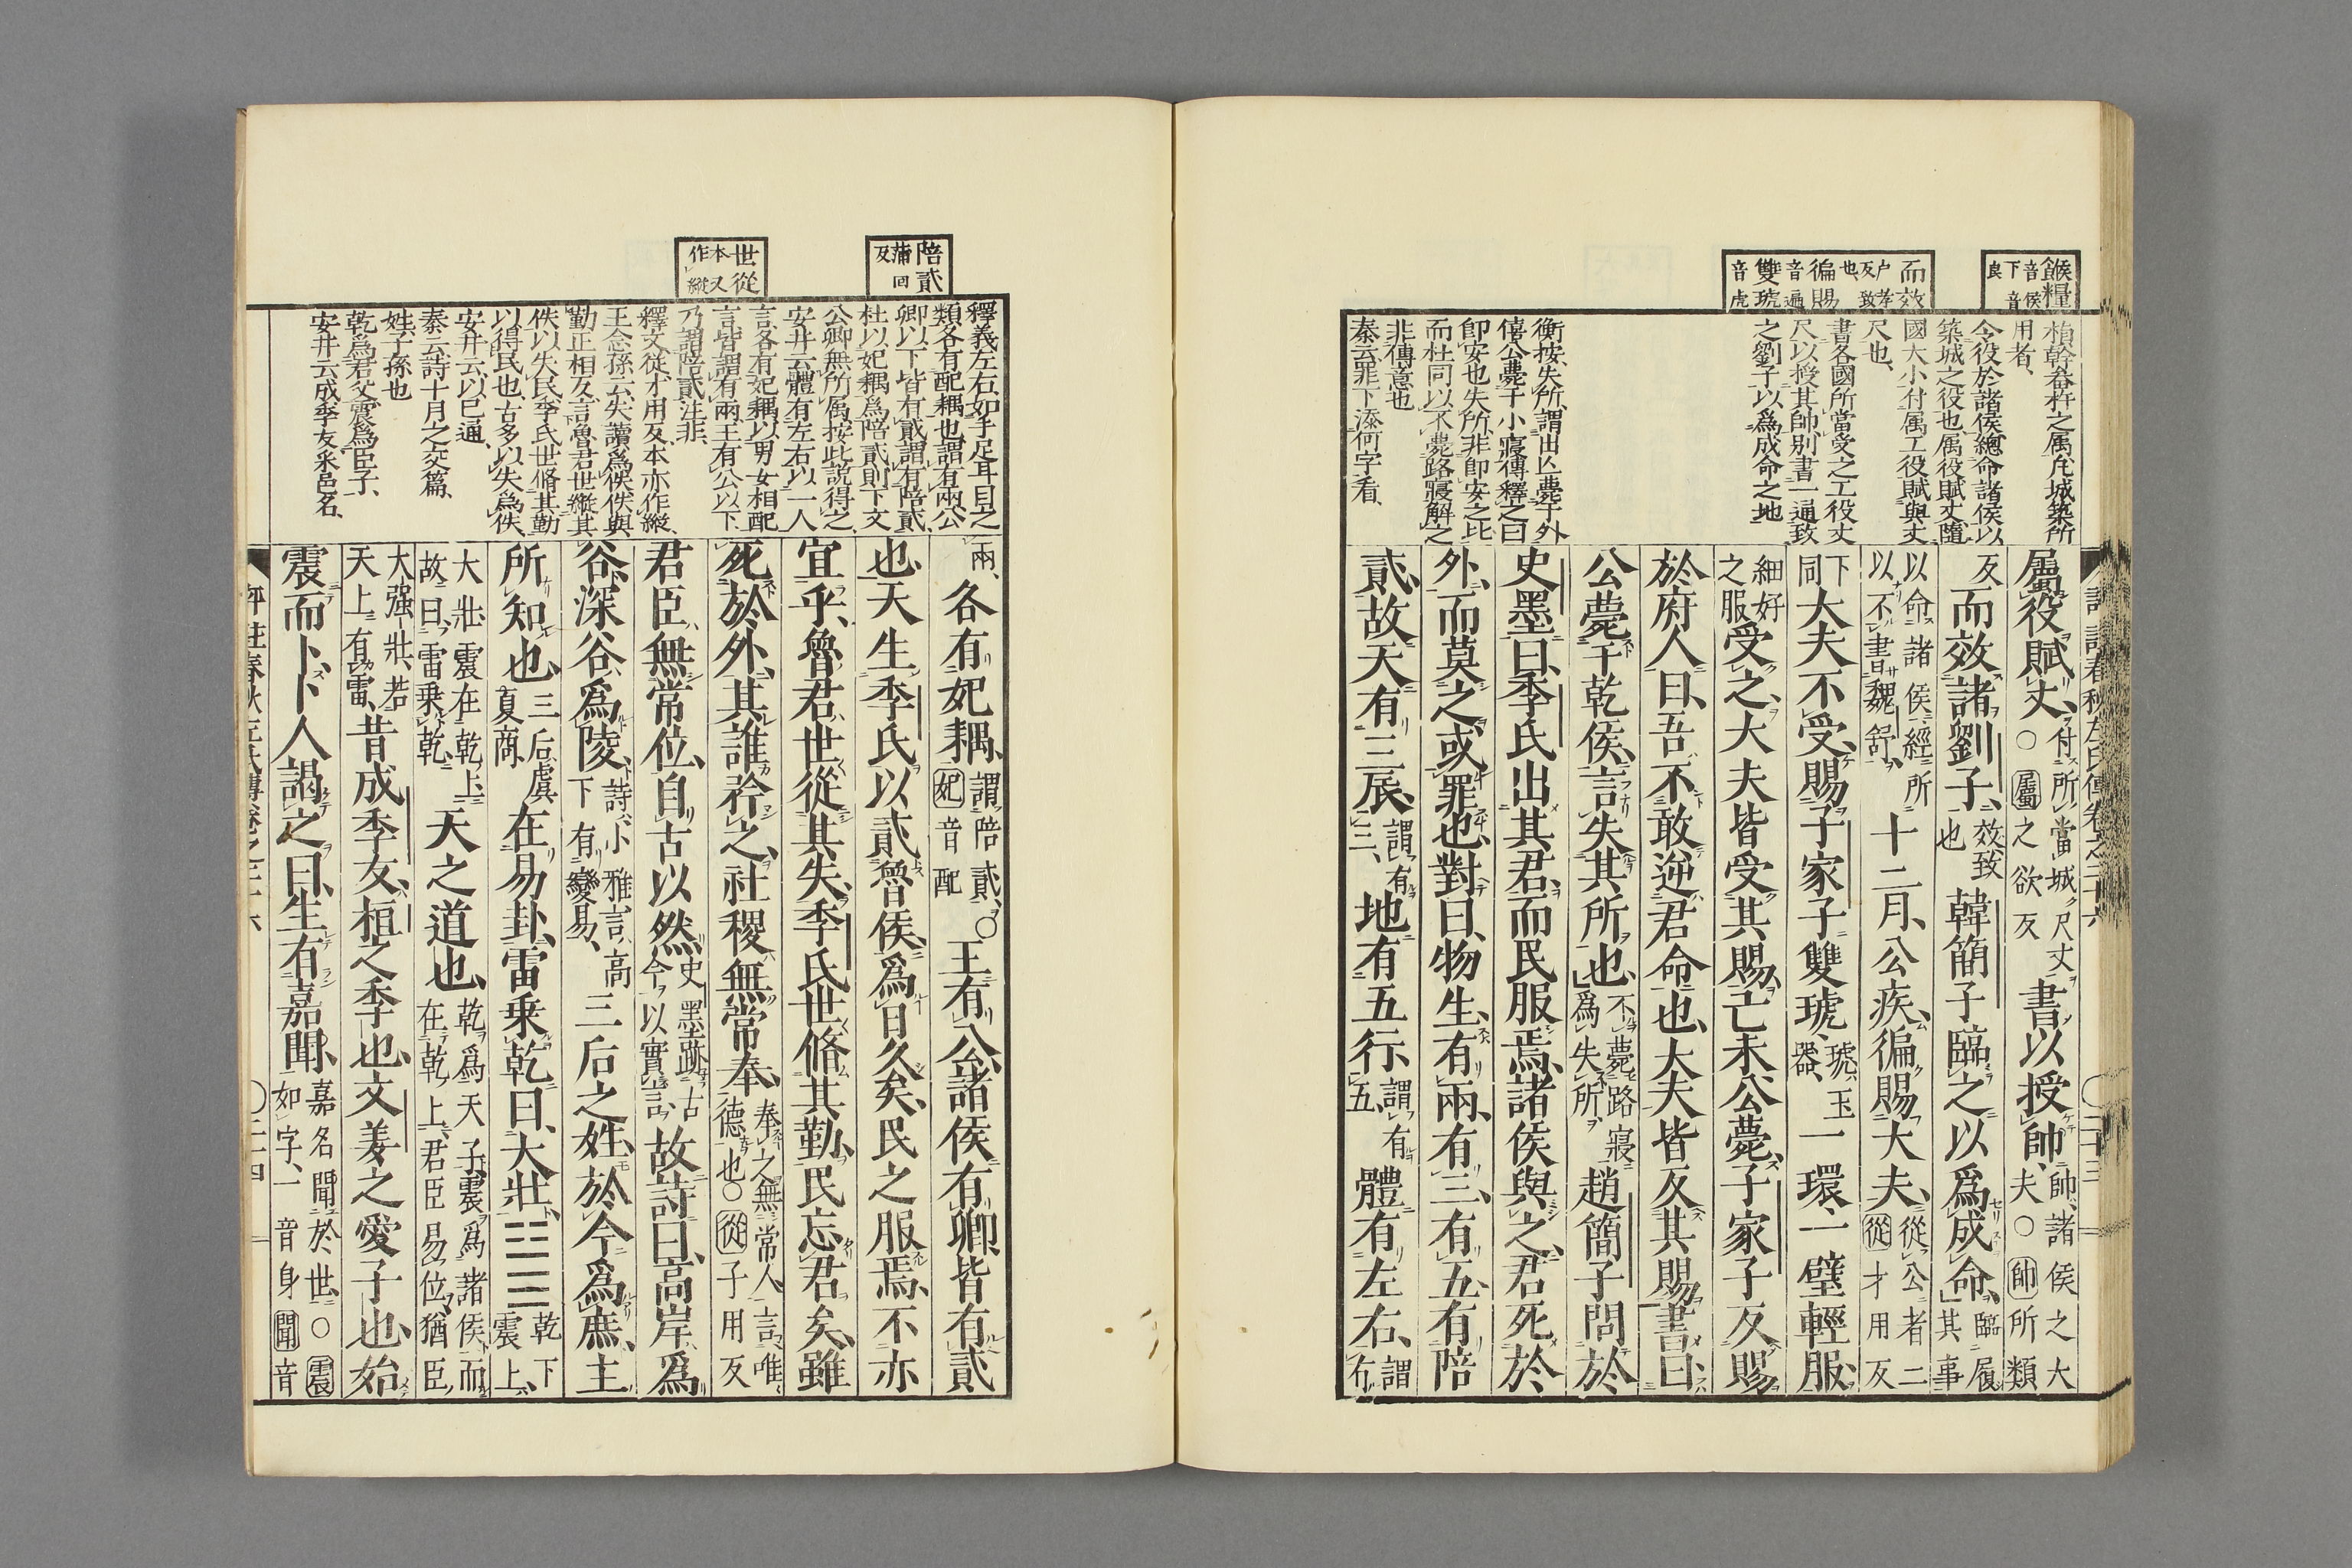 餱糧 音侯 下音良
而效 户孝反 致也
徧賜 音遍
雙琥 音虎
楨幹畚杵之属凡城築所
用者
令役於諸侯總命諸侯以
築城之役也属役賦丈隨
國大小付属工役賦與丈
尺也
書各國所當受之工役丈
尺以授其帥別書一通致
之劉子以爲成命之地
衡按失所謂出亾薨于外
僖公薨于小寢傳釋之曰
卽安也失所非卽安之比
而杜同以不薨路寢解之
非傳意也
秦云罪下添何字看
屬役賦丈 付所當城尺丈○屬之欲反 書以授帥 帥諸侯之大夫○帥所類
反 而效諸劉子 效致也 韓簡子臨之以爲成命 臨履其事
以命諸侯經所以不書魏舒 十二月公疾徧賜大夫 從公者○從才用反
下同 大夫不受賜子家子雙琥 琥玉器 一環一璧輕服
細好之服 受之大夫皆受其賜己未公薨子家子反賜
於府人曰吾不敢逆君命也大夫皆反其賜書曰
公薨于乾侯言失其所也 不薨路寢爲失所 趙簡子問於
史墨曰季氏出其君而民服焉諸侯與之君死於
外而莫之或罪也對曰物生有兩有三有五有陪
貳故天有三辰 謂有三 地有五行 謂有五 體有左右 謂有
陪貳 蒲回反
世從 本又作縱
釋義左右如手足耳目之
類各有配耦也謂有兩公
卿以下皆有貳謂有陪貳
杜以妃耦爲陪貳則下文
公卿無所属按此説得之
安井云體有左右以一人
言各有妃耦以男女相配
言皆謂有兩王有公以下
乃謂陪貳注非
釋文從才用反本亦作縱
王念孫云失讀爲佚佚與
勤正相反言魯君世縱其
佚以失民季氏世脩其勤
以得民也古多以失爲佚
安井云以已通
秦云詩十月之交篇
姓子孫也
乾爲君父震爲臣子
安井云成季友采邑名
兩 各有妃耦 謂陪貳○妃音配 王有公諸侯有卿皆有貳
也天生季氏以貳魯侯爲日久矣民之服焉不亦
宜乎魯君世從其失季氏世脩其勤民忘君矣雖
死於外其誰矜之社稷無常奉 奉之無常人言唯德也○從子用反
君臣無常位自古以然 史墨跡古今以實言 故詩曰高岸爲
谷深谷爲陵 詩小雅言高下有變易 三后之姓於今爲庶主
所知也 三后虞夏商 在易卦雷乘乾曰大壯䷡ 乾下震上
大壯震在乾上故曰雷乘乾 天之道也 乾爲天子震爲諸侯而在乾上君臣易位猶臣
大强壯若天上有雷 昔成季友桓之季也文姜之愛子也始
震而卜卜人謁之曰生有嘉聞 嘉名聞於世○震如字一音身聞音
評註春秋左氏傳卷之二十六